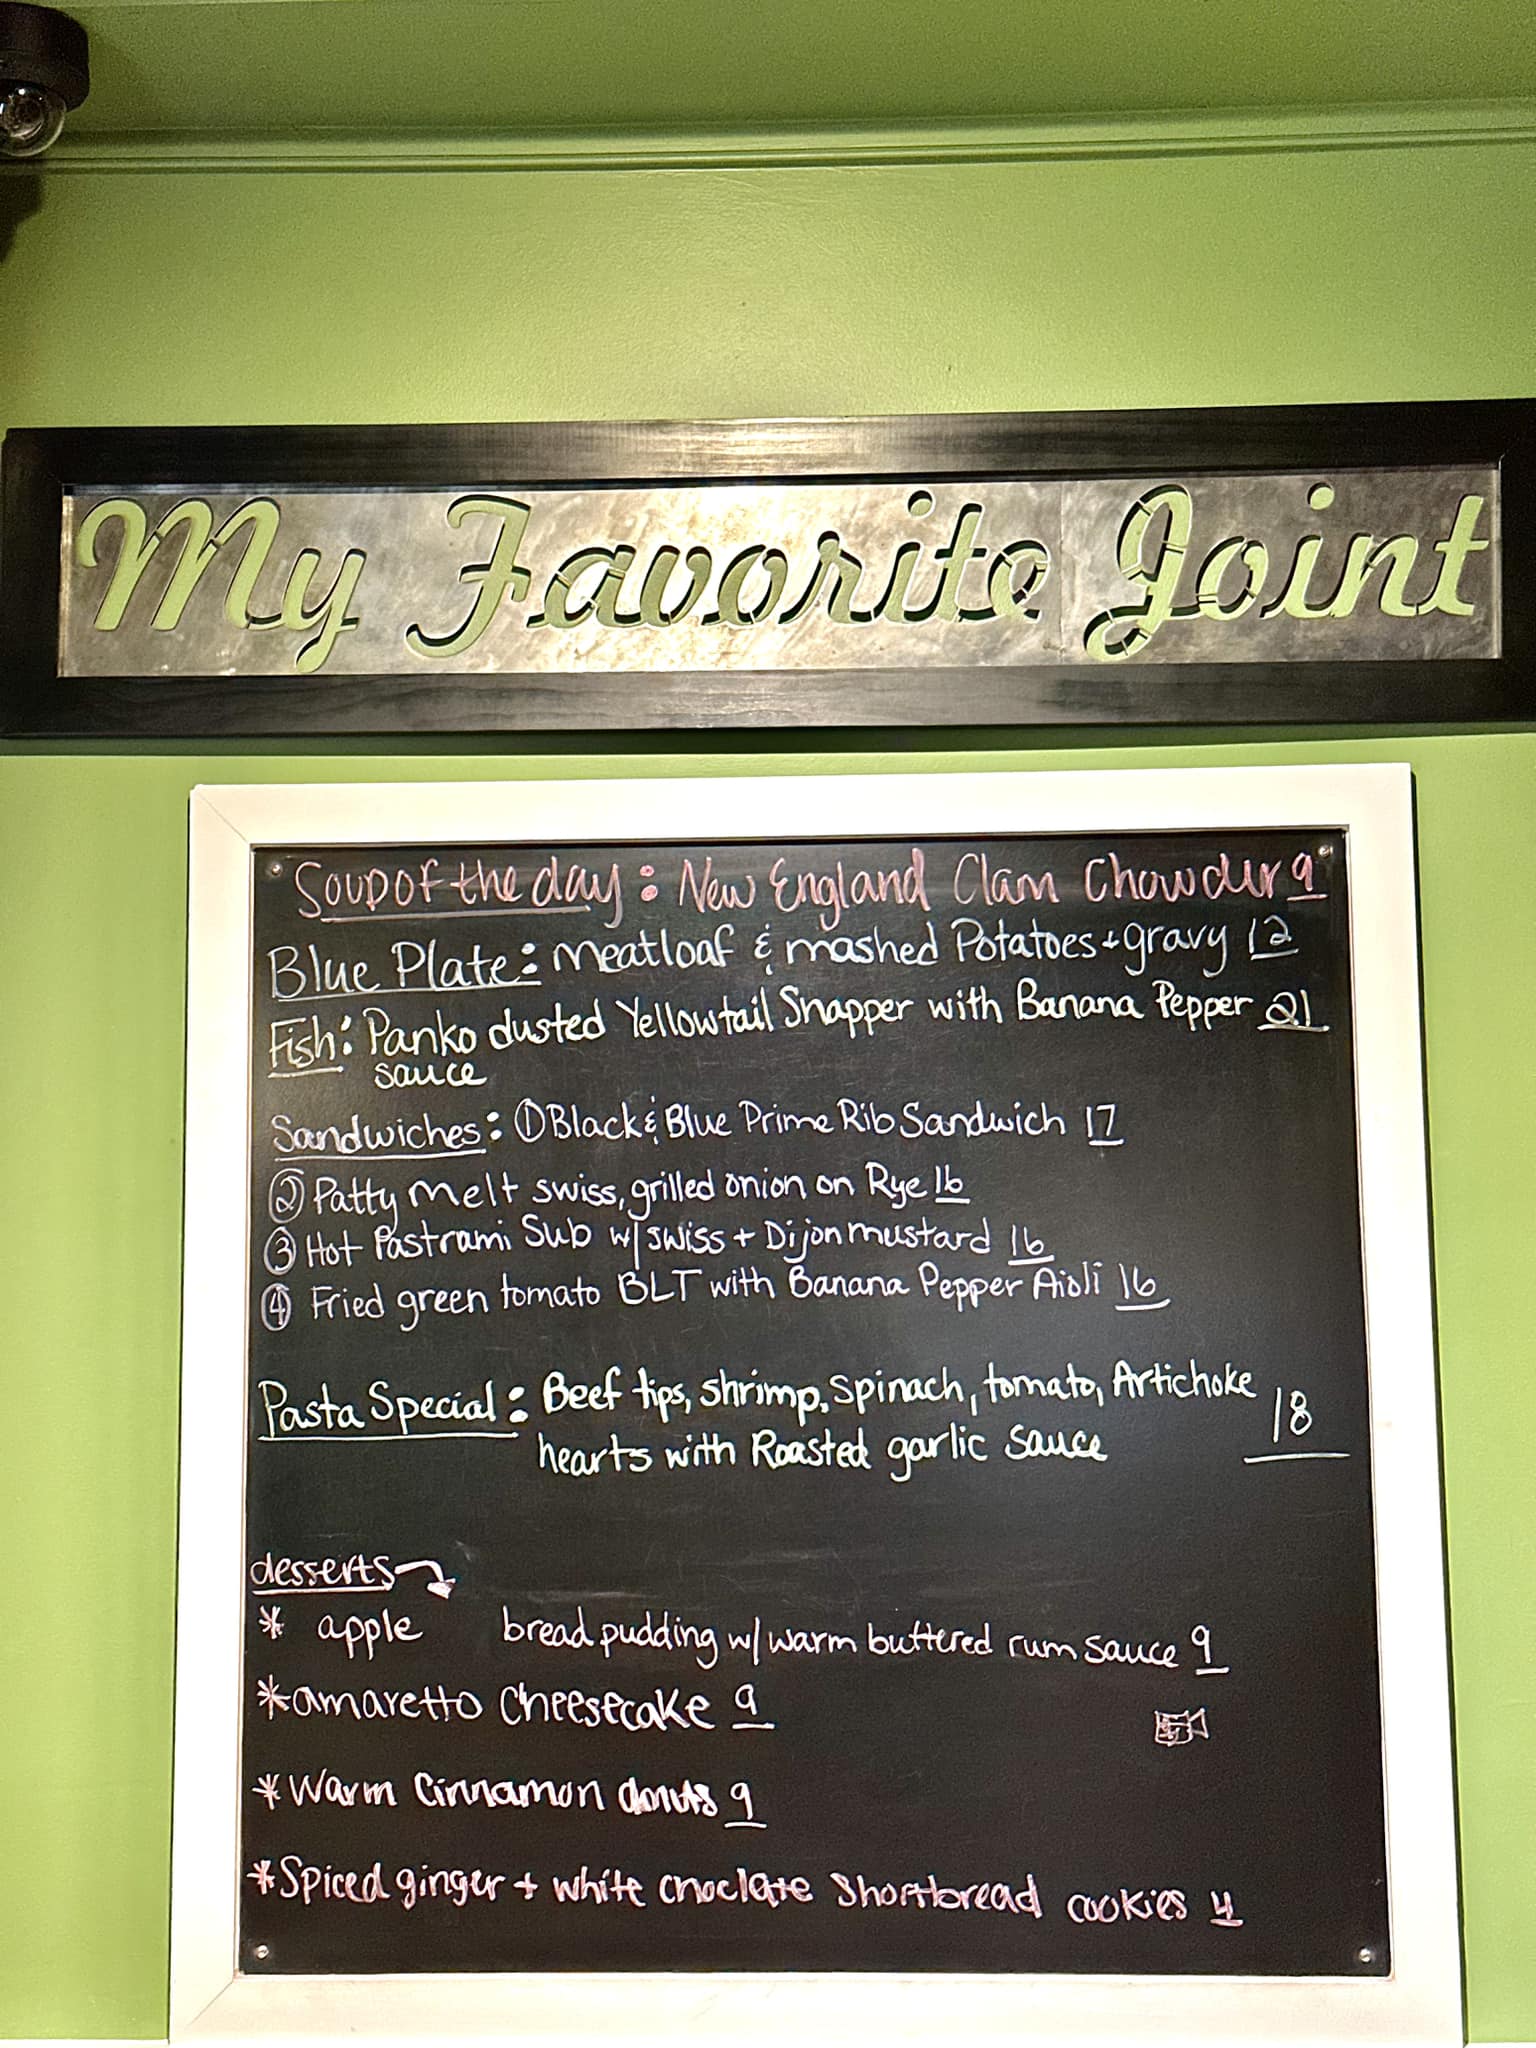 My Favorite Joint
Soup of the day: New England Clam Chowder 9
Blue Plate: Meatloaf & mashed Potatoes + gravy 12
Fish: Panko dusted Yellowtail Snapper with Banana Pepper 21
sauce
Sandwiches: ① Black & Blue Prime Rib Sandwich 17
② Patty Melt swiss, grilled onion on Rye 16
③ Hot Pastrami Sub w/ swiss + Dijon mustard 16
④ Fried green tomato BLT with Banana Pepper Aioli 16
Pasta Special: Beef tips, shrimp, spinach, tomato, Artichoke
hearts with Roasted garlic sauce 18
desserts
* apple bread pudding w/ warm buttered rum sauce 9
* amaretto cheesecake 9
* Warm Cinnamon donuts 9
* Spiced ginger + white choclate shortbread cookies 4